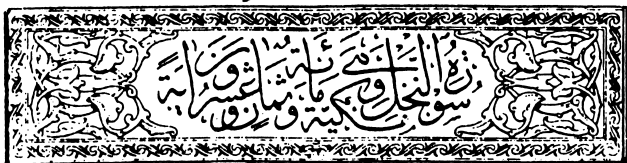 سورة النحل مكية وهي مائة وثمان وعشرون آية